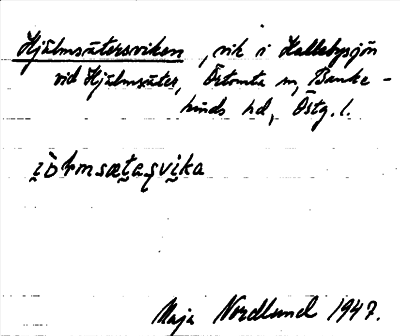 Hjälmsätersviken, vik i Hallebysjön
vid Hjälmsäter, Örtomta sn, Banke-
kinds hd, Östg. l.
Maja Nordlund 1947.